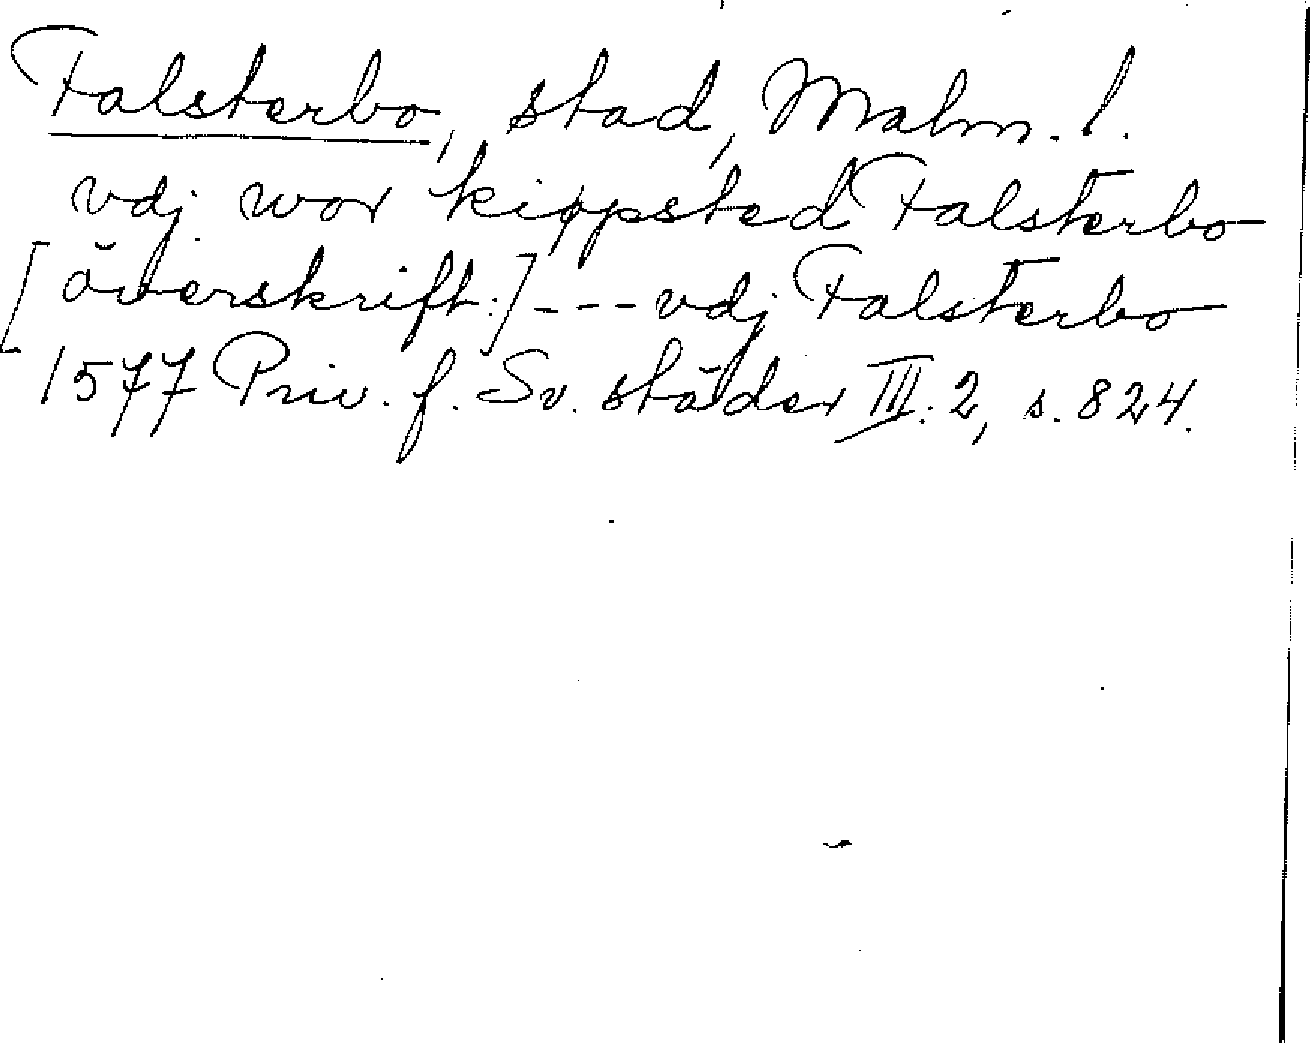 Falsterbo, stad, Malm. l.
vdj wor kiøpsted Falsterbo
[överskrift:] --- vdj Falsterbo
1577 Priv. f. Sv. städer III:2, s. 824.